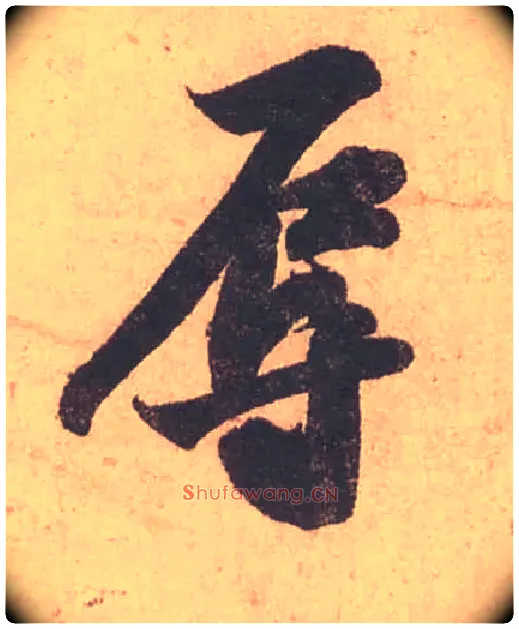 辱
Shufawang.CN